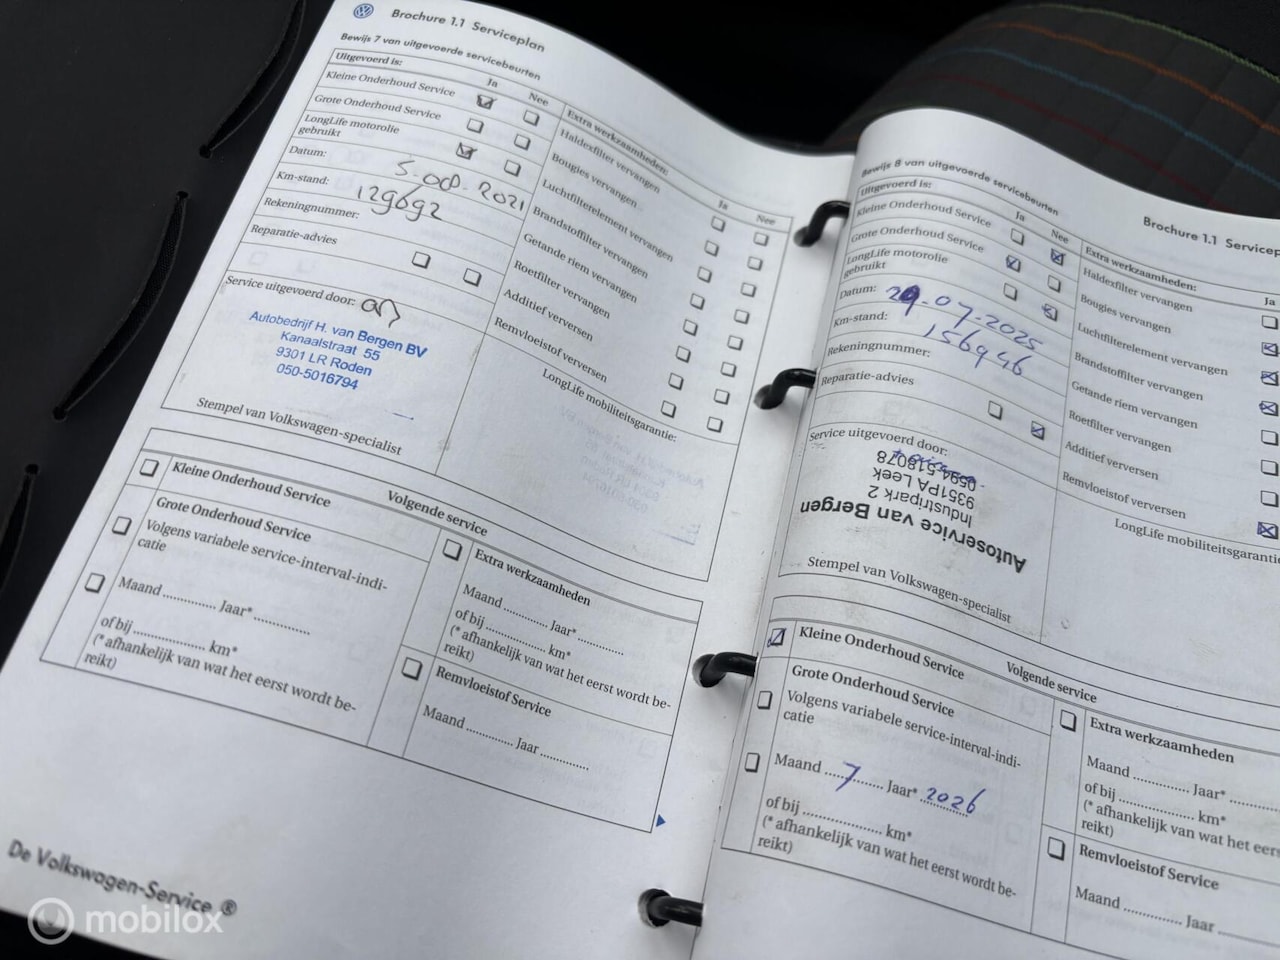 Brochure 1.1 Serviceplan
Bewijs 7 van uitgevoerde servicebeurten
Uitgevoerd is:
Ja
Nee
Kleine Onderhoud Service
Grote Onderhoud Service
LongLife motorolie
gebruikt
Datum:
5.08.2021
Km-stand:
129692
Rekeningnummer:
Reparatie-advies
Service uitgevoerd door:
Autobedrijf H. van Bergen BV
Kanaalstraat 55
9301 LR Roden
050-5016794
Stempel van Volkswagen-specialist
Extra werkzaamheden:
Ja
Nee
Haldexfilter vervangen
Bougies vervangen
Luchtfilterelement vervangen
Brandstoffilter vervangen
Getande riem vervangen
Roetfilter vervangen
Additief verversen
Remvloeistof verversen
LongLife mobiliteitsgarantie:
Volgende service
Kleine Onderhoud Service
Grote Onderhoud Service
Volgens variabele service-interval-indi-
catie
Maand ............... Jaar* ...............
of bij .................... km*
(* afhankelijk van wat het eerst wordt be-
reikt)
Extra werkzaamheden
Maand ............ Jaar* ............
of bij ............... km*
(* afhankelijk van wat het eerst wordt be-
reikt)
Remvloeistof Service
Maand ............... Jaar ...............
De Volkswagen-Service.®
mobilox
Brochure 1.1 Servicep
Bewijs 8 van uitgevoerde servicebeurten
Uitgevoerd is:
Ja
Nee
Kleine Onderhoud Service
Grote Onderhoud Service
LongLife motorolie
gebruikt
Datum:
29.07.2025
Km-stand:
156946
Rekeningnummer:
Reparatie-advies
Service uitgevoerd door:
Autoservice van Bergen
Industripark 2
9351PA Leek
0594518078
Stempel van Volkswagen-specialist
Extra werkzaamheden:
Ja
Haldexfilter vervangen
Bougies vervangen
Luchtfilterelement vervangen
Brandstoffilter vervangen
Getande riem vervangen
Roetfilter vervangen
Additief verversen
Remvloeistof verversen
LongLife mobiliteitsgarantie
Volgende service
Kleine Onderhoud Service
Grote Onderhoud Service
Volgens variabele service-interval-indi-
catie
Maand ....7.... Jaar* 2026
of bij .................... km*
(* afhankelijk van wat het eerst wordt be-
reikt)
Extra werkzaamheden
Maand ............ Jaar* ............
of bij ............... km*
(* afhankelijk van wat het eers
reikt)
Remvloeistof Service
Maand ............... Jaar ...............